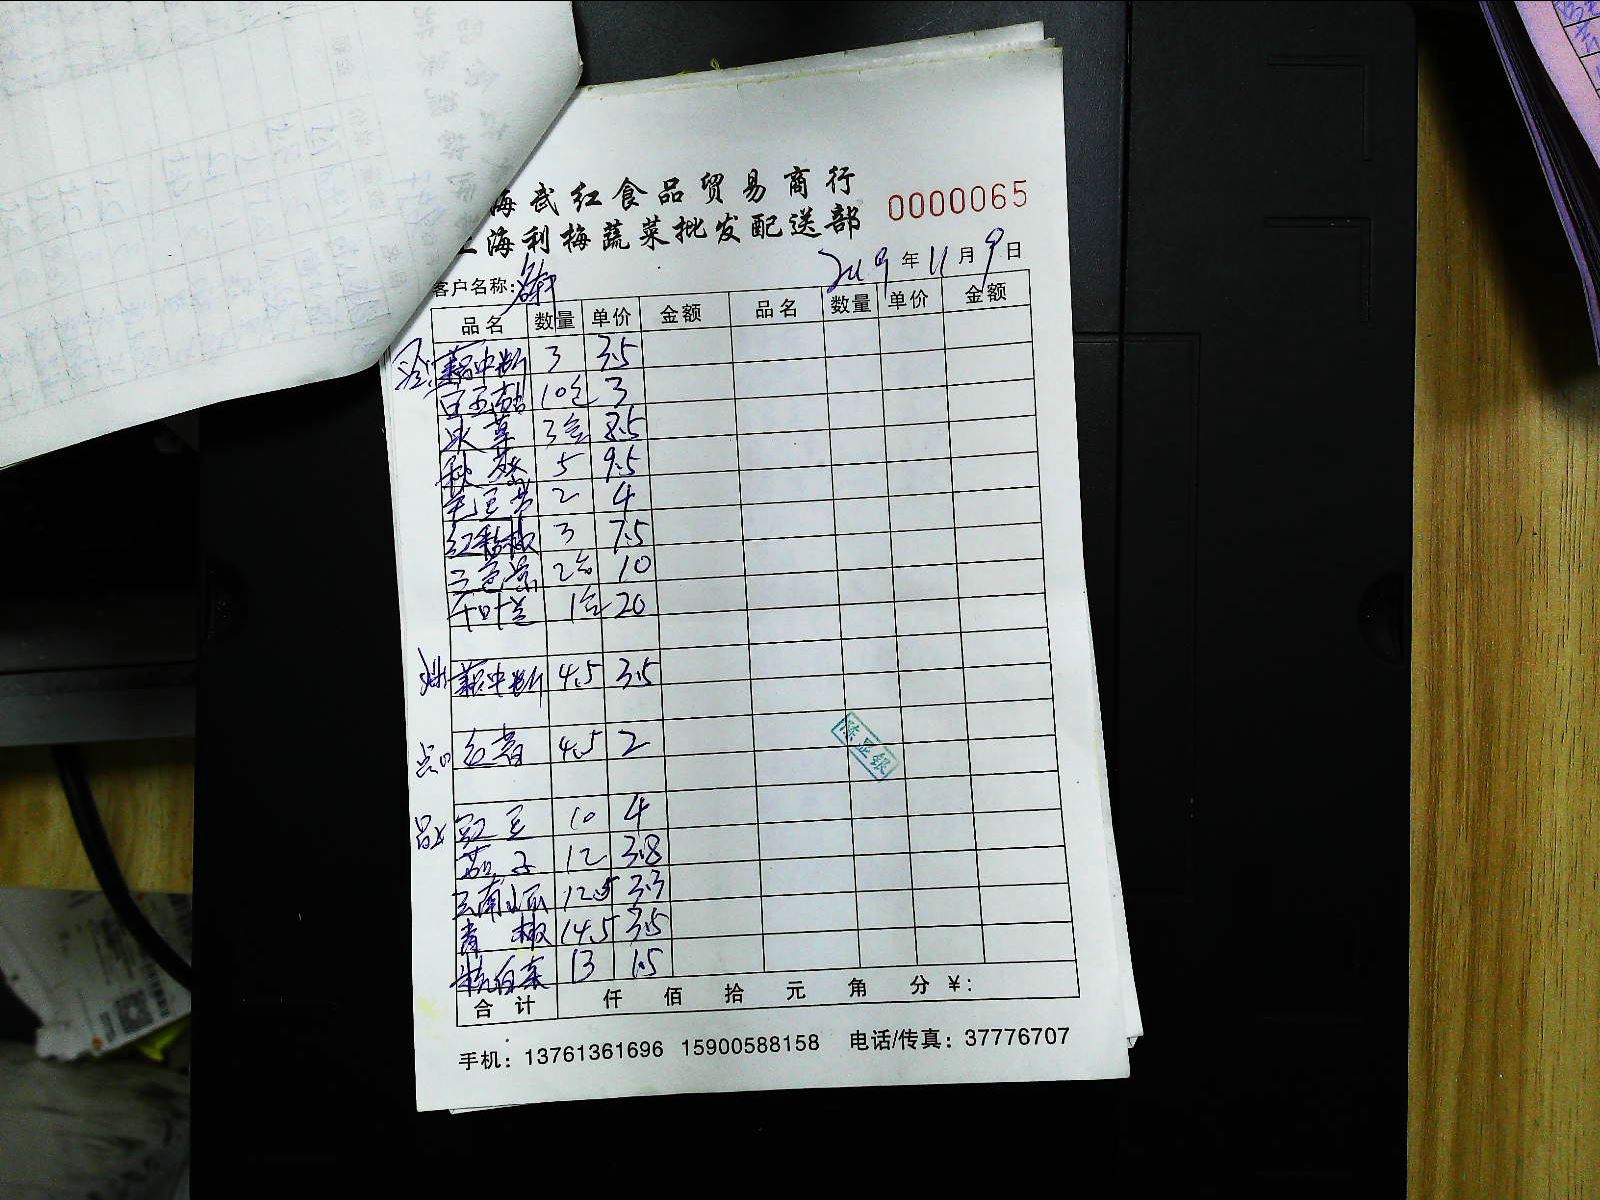 海武红食品贸易商行
上海利梅蔬菜批发配送部
0000065
客户名称:
2019年11月9日
品名 数量 单价 金额 品名 数量 单价 金额
藕中断 3 3.5
10包 3
冰草 3盒 8.5
秋葵 5 9.5
毛豆节 2 4
红尖椒 3 7.5
三色堇 2盒 10
1盒 20
藕中断 4.5 3.5
点心 红薯 4.5 2
豇豆 10 4
茄子 12 3.8
云南小瓜 12.5 3.3
青椒 14.5 3.5
杭白菜 13 1.5
合计 仟 佰 拾 元 角 分 ¥:
手机: 13761361696 15900588158 电话/传真: 37776707